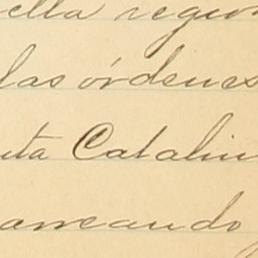 ella region
las órdenes
nta Catalin
arreando